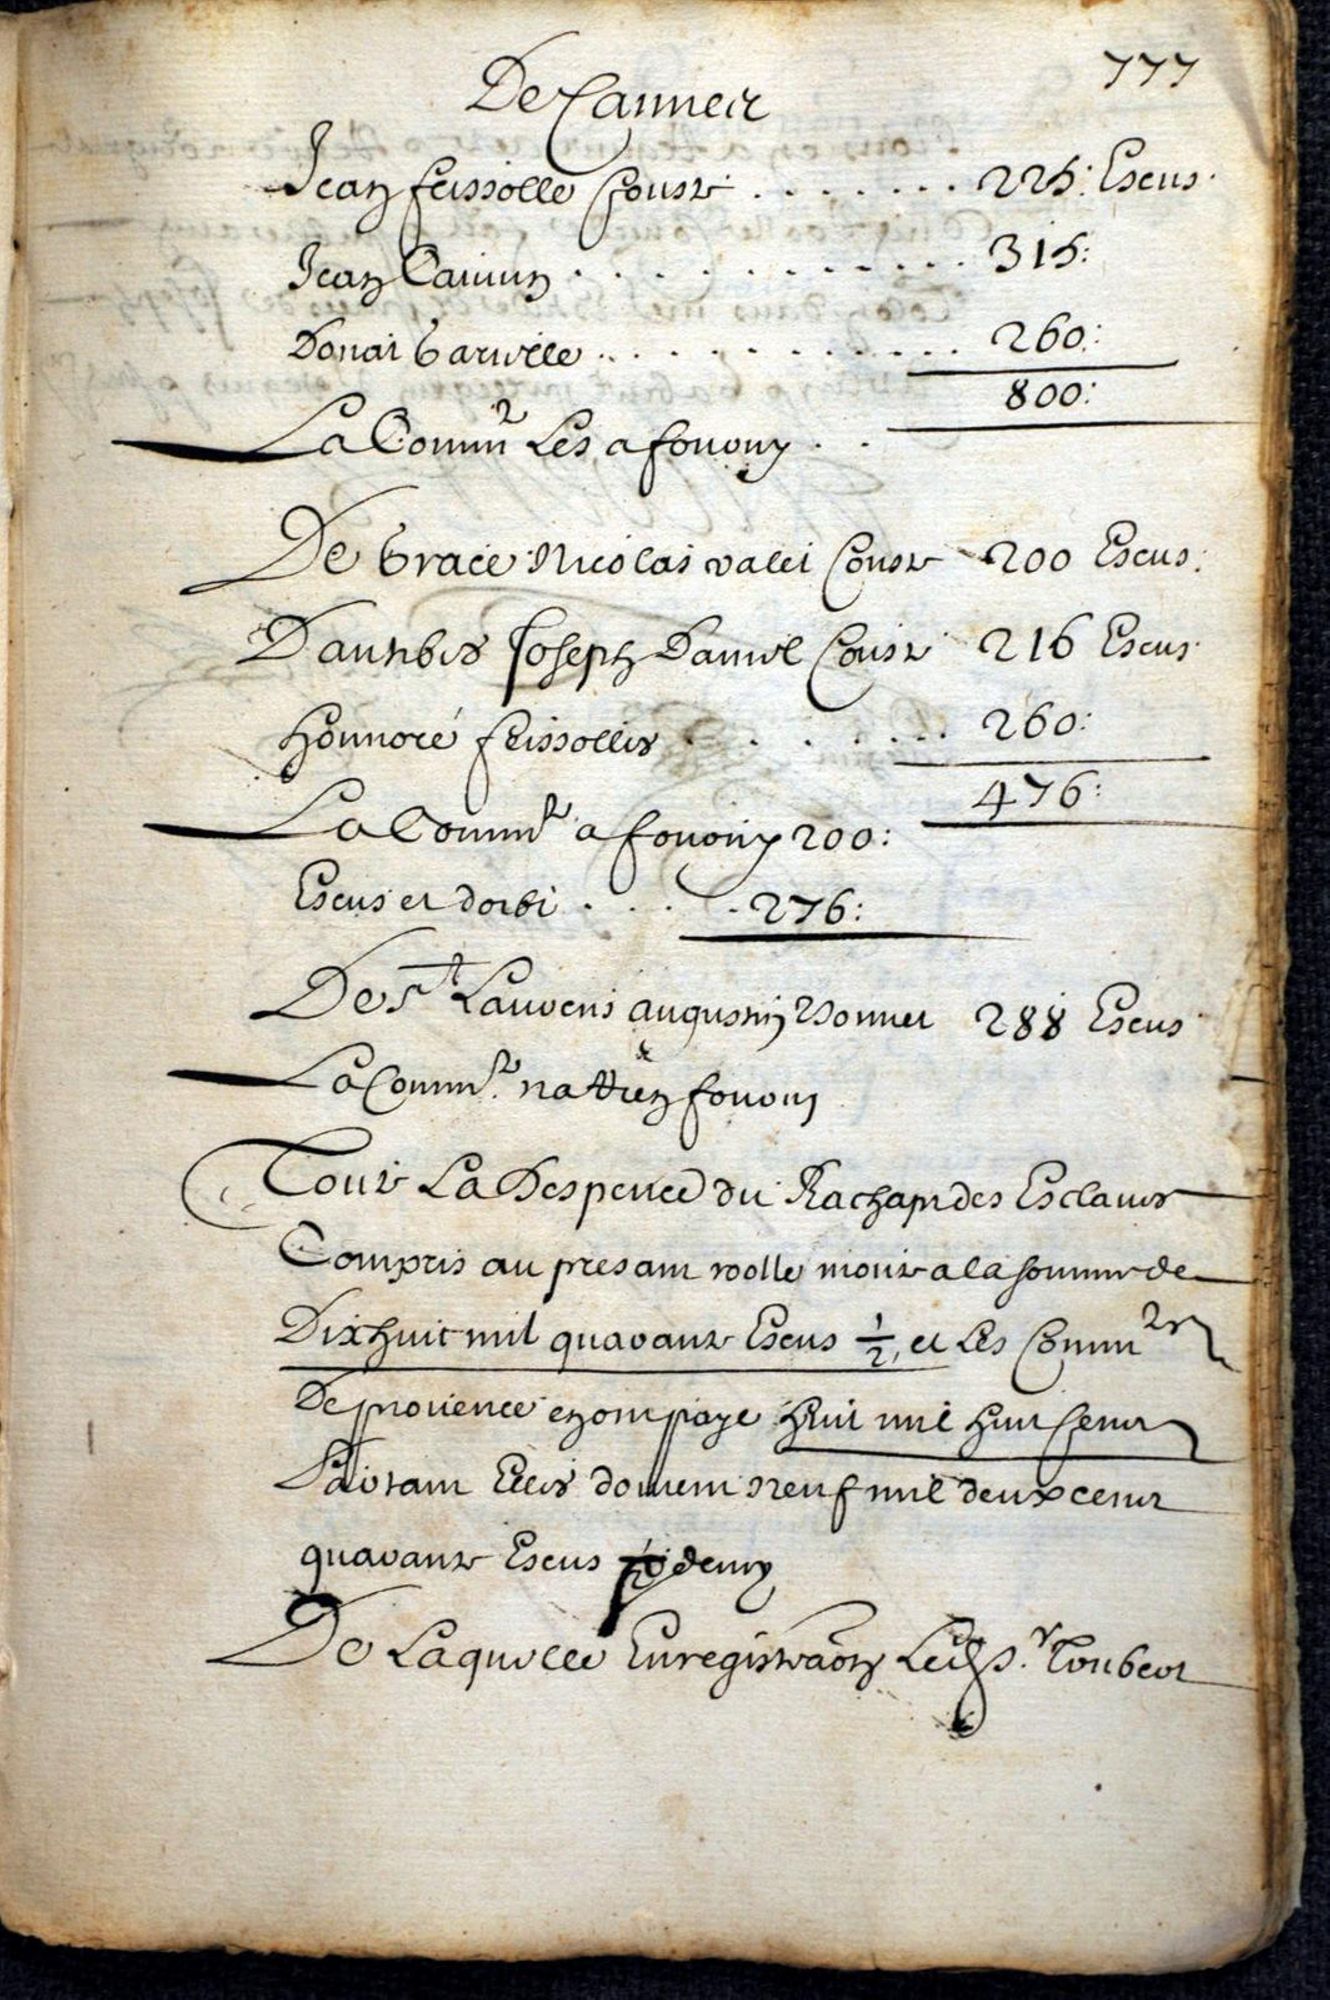 777
De Cannes
Jean feissolle Couste ....... 225: Escus.
Jean Carium ........... 315:
Donat barielle ........... 260:
800:
La Commte Les a fourny ..
De Grace Nicolas valet Couste 200 Escus:
Dantibes Joseph Daniel Couste 216 Escus
honnoré feissolles ....... 260:
476:
La Commte a fourny 200:
Escus et doibt .... 276:
De st Laurens augustin 288 Escus
La Commte na rien fourny
Toute La Despence du Rachapt des Esclaves
Compris au presant rolle monte a la somme de
Dixhuit mil quarante Escus 1/2, et Les Commtes
De provence en ont paye huit mil huit sents
Partant Elles doivent Neuf mil deux cents
quarante Escus demy
De Laquelle Enregistraon Led sr